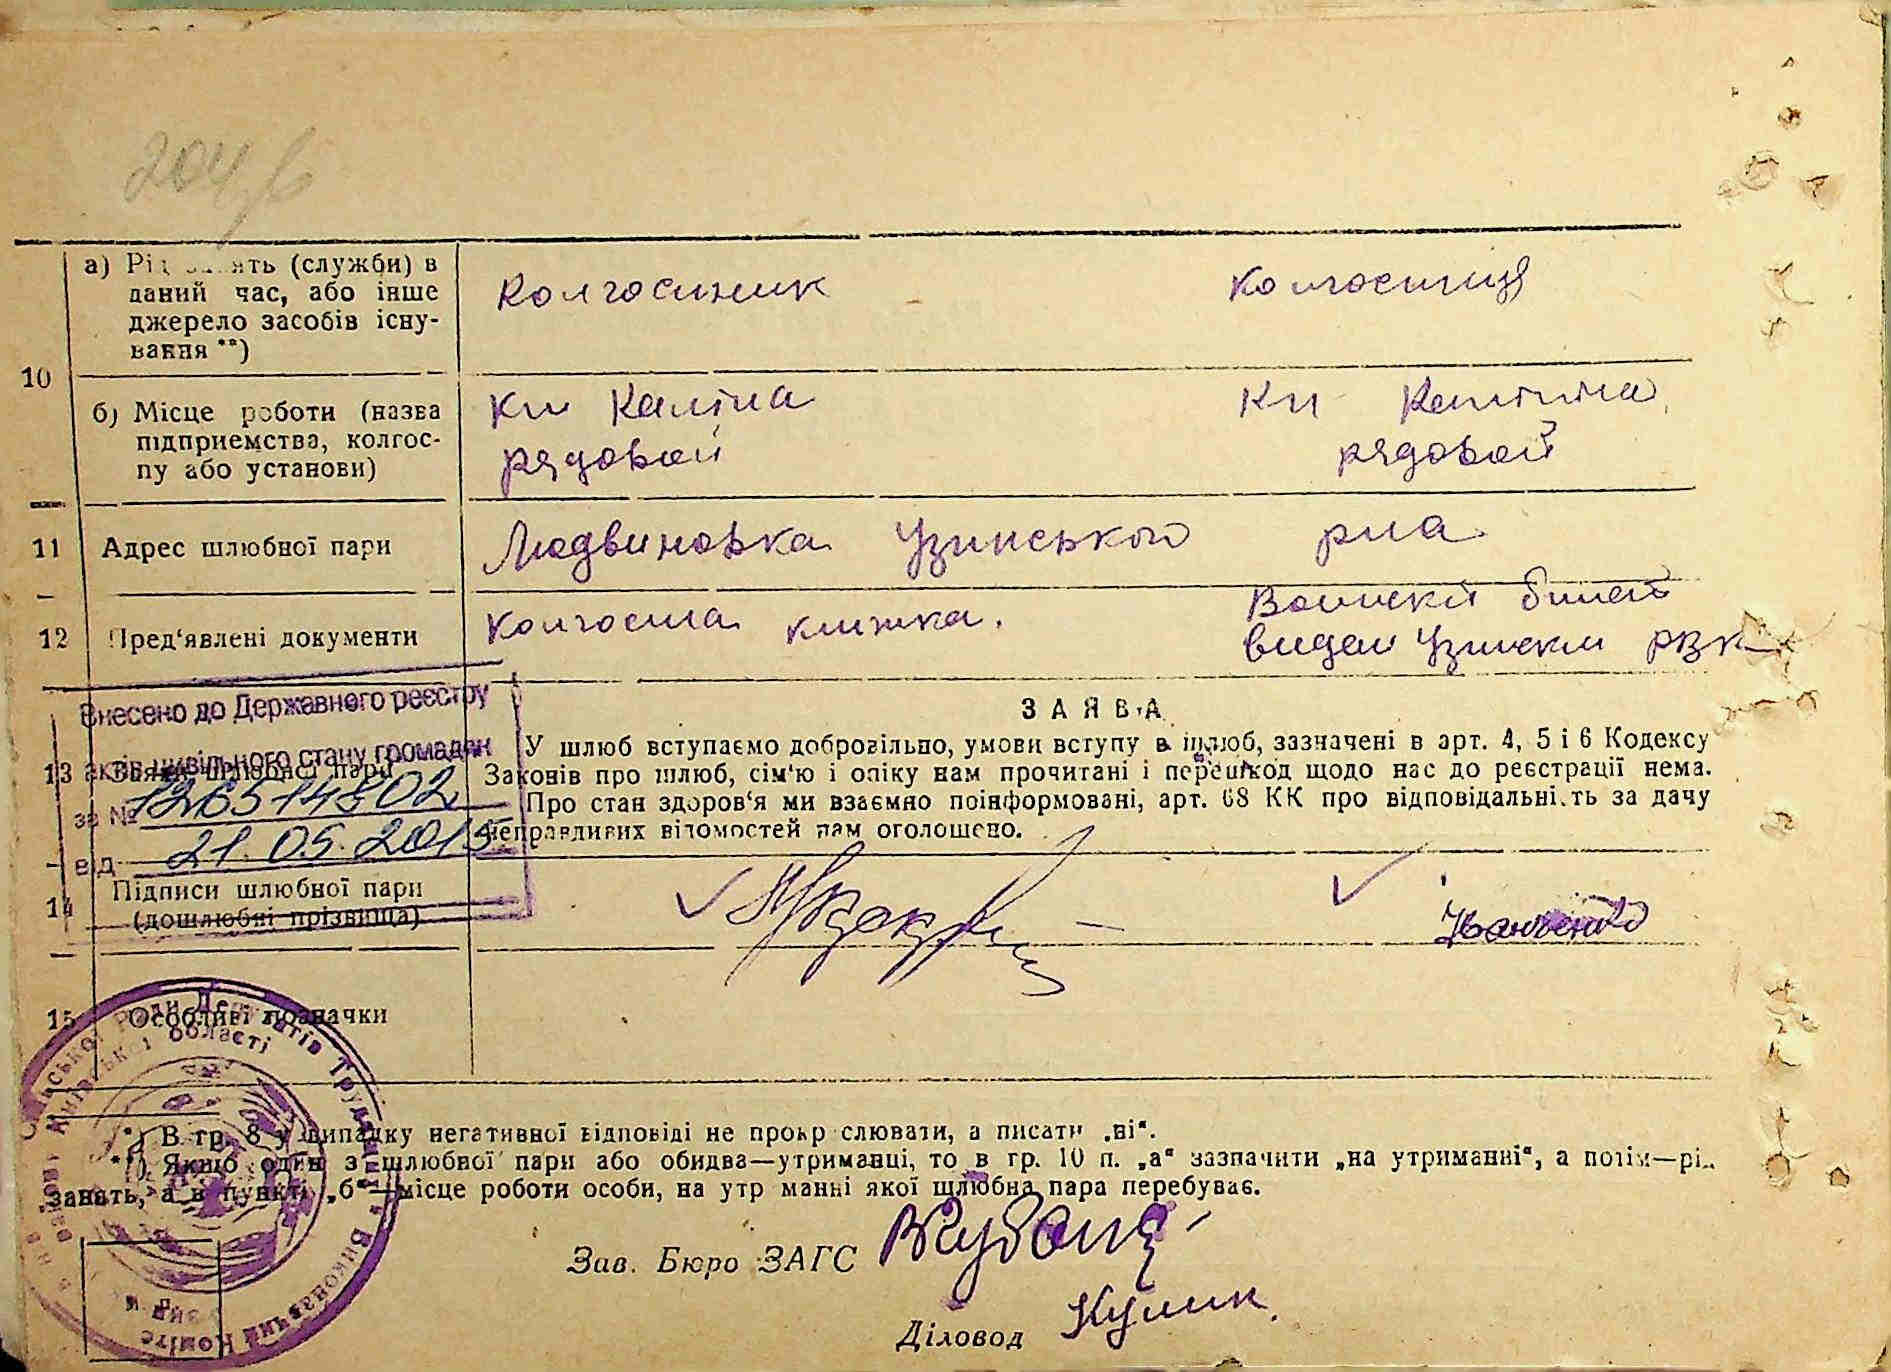 204
10
а) Рід занять (служби) в
даний час, або інше
джерело засобів існу-
вання **)
Колгоспник
колгоспниця
б) Місце роботи (назва
підприємства, колгос-
пу або установи)
Кп Калініна
рядовой
Кп Калініна
рядовой
11 Адрес шлюбної пари
Людвиновка Узинського рна
12 Пред'явлені документи
Колгоспна книжка.
Воинский билет
видан Узинским РВК
Внесено до Державного реєстру
актів цивільного стану громадян
за № 126514802
від 21.05.2015
13 Заява шлюбної пари
ЗАЯВА
У шлюб вступаємо добровільно, умови вступу в шлюб, зазначені в арт. 4, 5 і 6 Кодексу
Законів про шлюб, сім'ю і опіку нам прочитані і перешкод щодо нас до реєстрації нема.
Про стан здоров'я ми взаємно поінформовані, арт. 68 КК про відповідальність за дачу
неправдивих відомостей нам оголошено.
14 Підписи шлюбної пари
(дошлюбні прізвища)
Іванченко
15 Особливі позначки
*) В гр. 8 у випадку негативної відповіді не прокреслювати, а писати „ні“.
**) Якщо один з шлюбної пари або обидва—утриманці, то в гр. 10 п. „а“ зазначити „на утриманні“, а потім—рід
занять, а в пункті „б“—місце роботи особи, на утриманні якої шлюбна пара перебуває.
Ради Депутатів Трудящих Виконавчий Комітет
Київської області
Зав. Бюро ЗАГС
Діловод Кулик